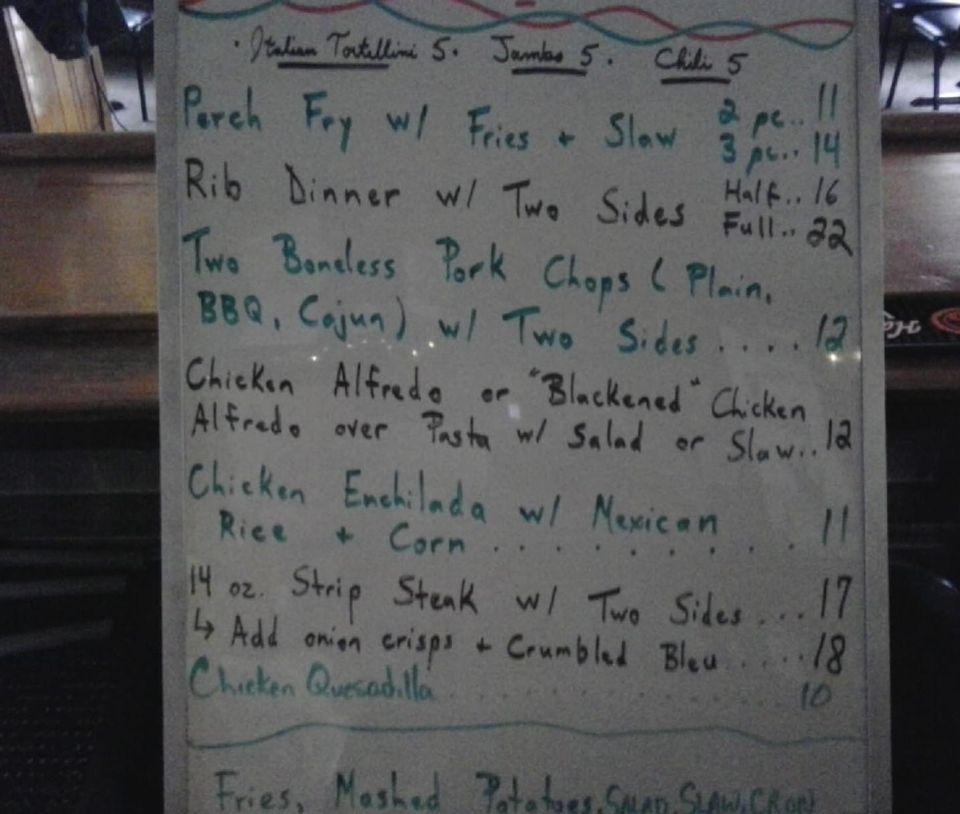 · Italian Tortellini 5 · Jambo 5 · Chili 5
Perch Fry w/ Fries + Slaw 2 pc.. 11
3 pc.. 14
Rib Dinner w/ Two Sides Half.. 16
Full.. 22
Two Boneless Pork Chops ( Plain,
BBQ, Cajun) w/ Two Sides .... 12
Chicken Alfredo or "Blackened" Chicken
Alfredo over Pasta w/ Salad or Slaw.. 12
Chicken Enchilada w/ Mexican
Rice + Corn .......... 11
14 oz. Strip Steak w/ Two Sides ... 17
↳ Add onion crisps + Crumbled Bleu ..... 18
Chicken Quesadilla .............. 10
Fries, Mashed Potatoes, SALAD, SLAW,